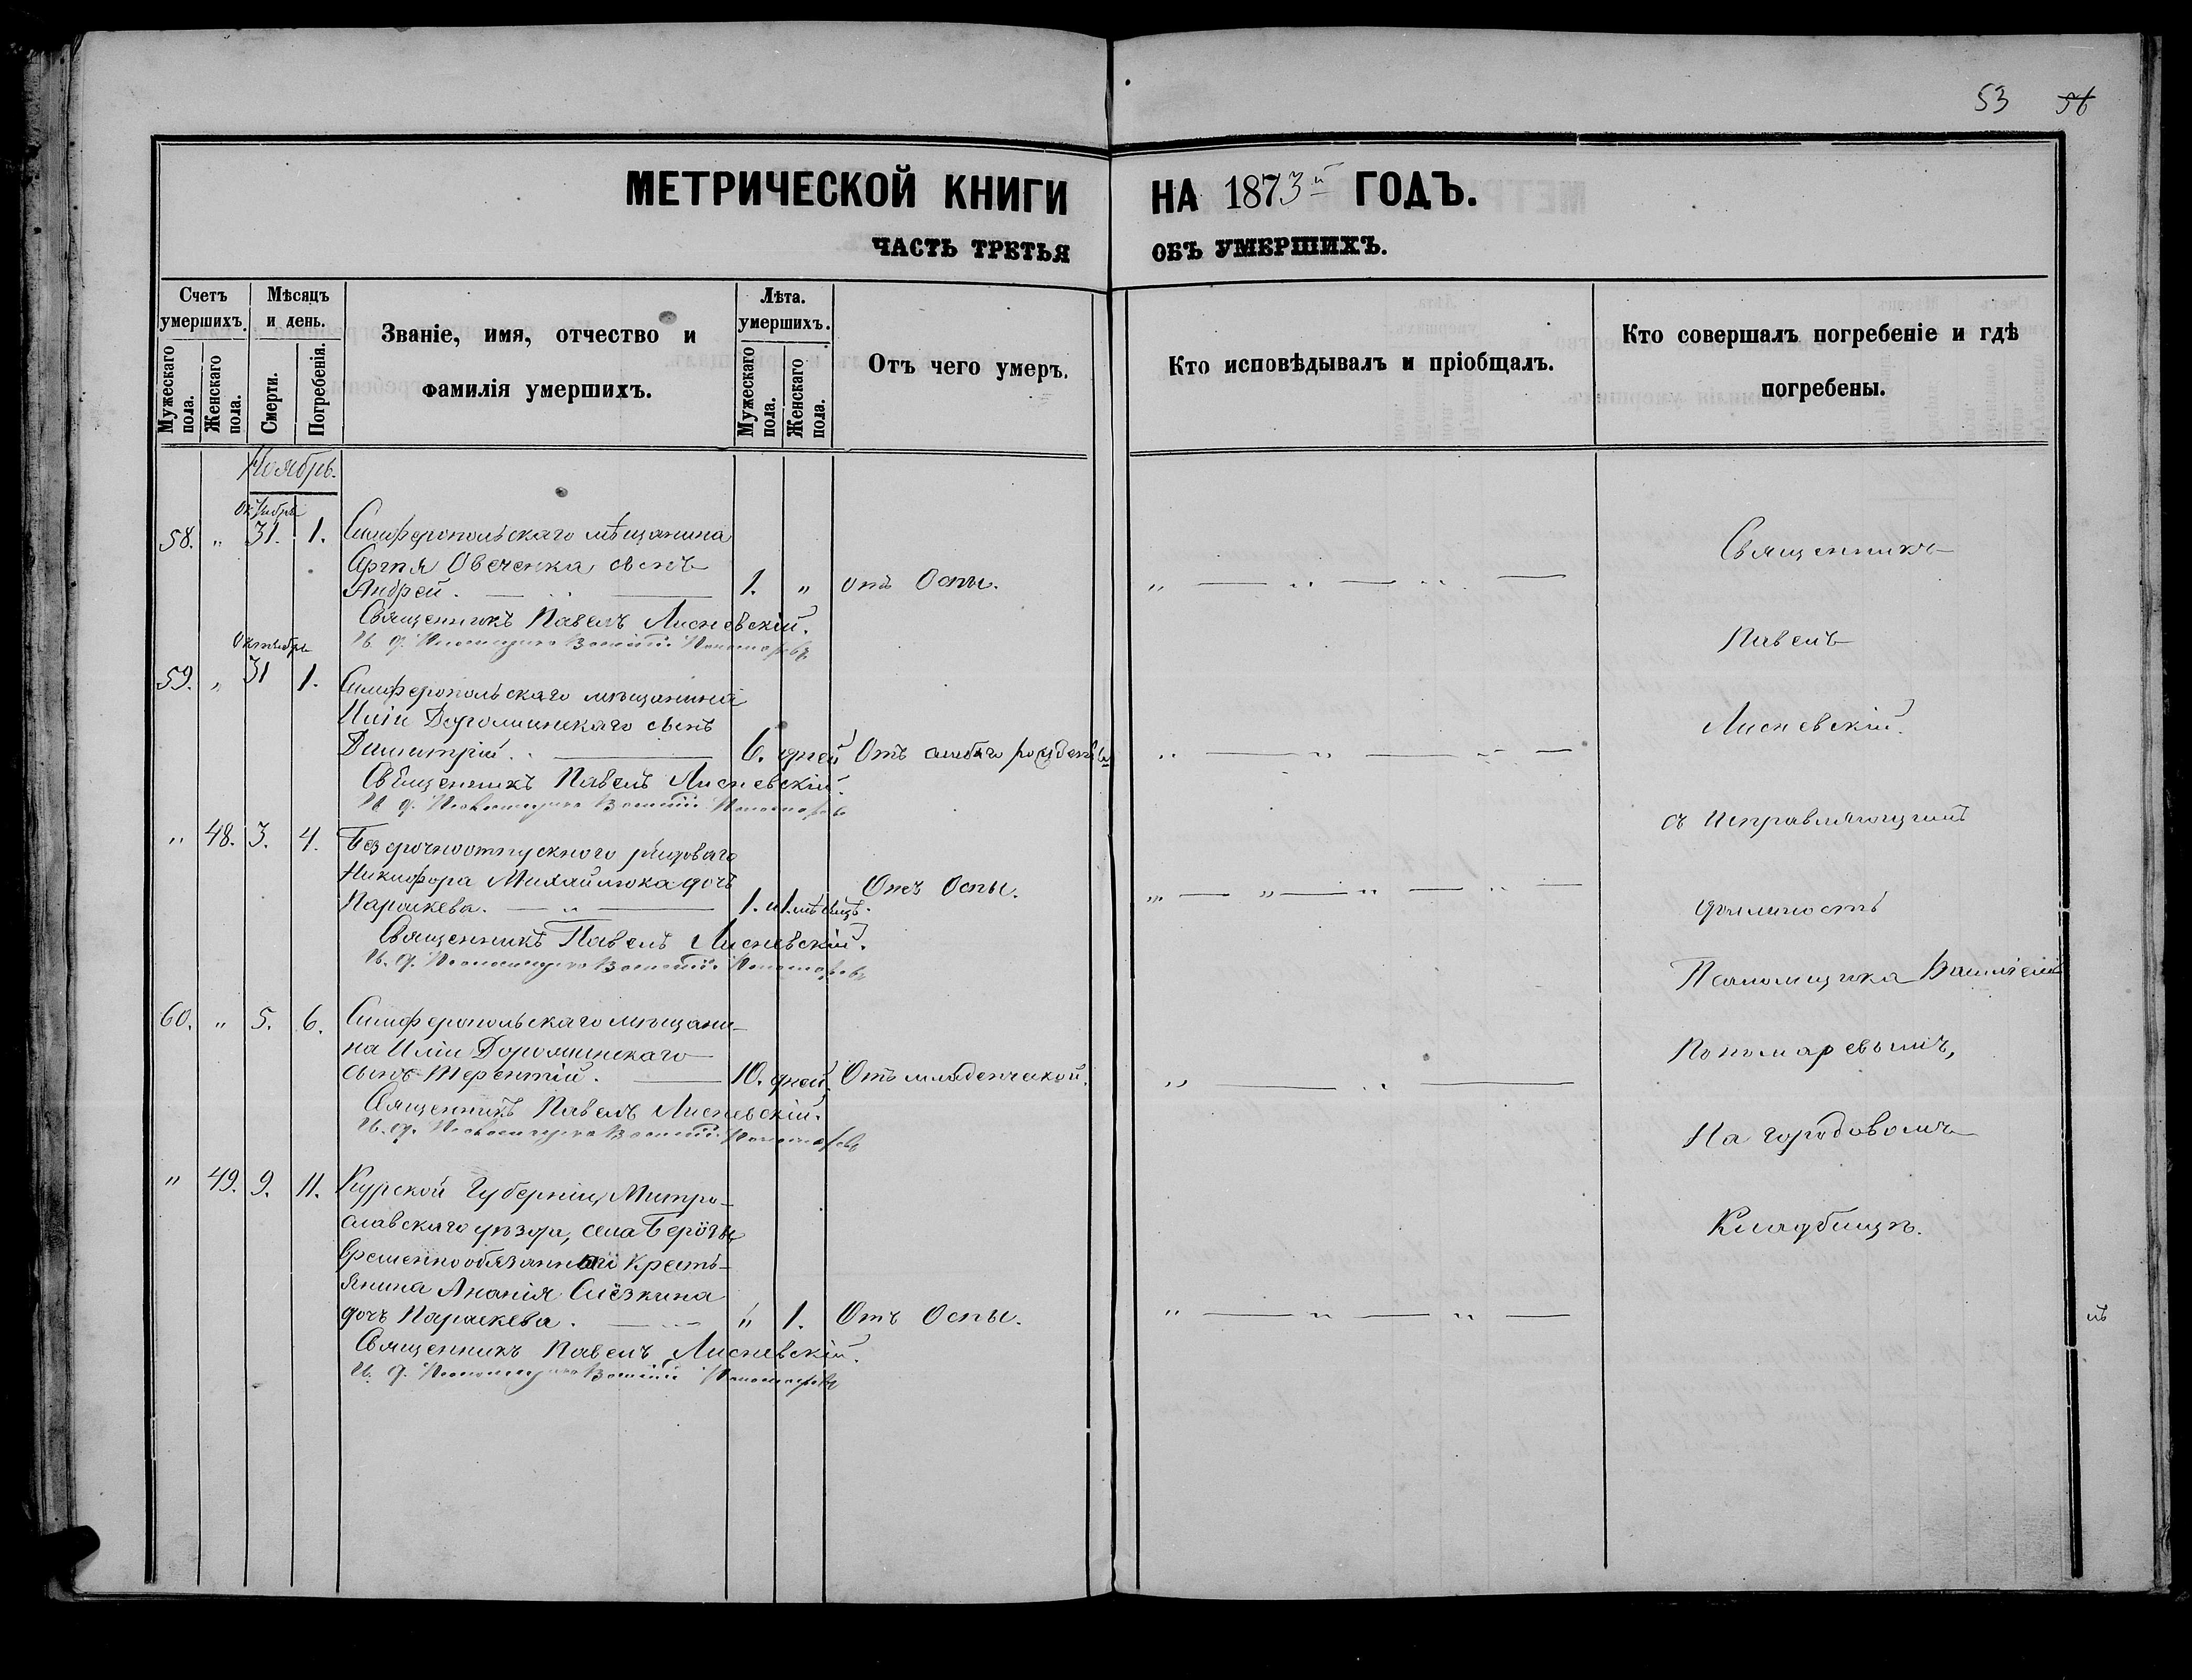 53 56
МЕТРИЧЕСКОЙ КНИГИ НА 1873й ГОДЪ.
ЧАСТЬ ТРЕТЬЯ ОБЪ УМЕРШИХЪ.
Счетъ умершихъ.
Мужескаго пола.
Женскаго пола.
Мѣсяцъ и день.
Смерти.
Погребенія.
Званіе, имя, отчество и
фамилія умершихъ.
Лѣта. умершихъ.
Мужескаго пола.
Женскаго пола.
Отъ чего умеръ.
Кто исповѣдывалъ и пріобщалъ.
Кто совершалъ погребеніе и гдѣ
погребены.
Ноябрь.
Октября
58. " 31. 1. Симферопольскаго мѣщанина
Овеченка сынъ
Андрей. 1. " отъ Оспы.
Священникъ Павелъ Лисневскій.
И. д. Псаломщика Василій Пономаревъ
Октября
59. " 31 1. Симферопольскаго мѣщанина
Иліи Дорошинскаго сынъ
Димитрій. 6. дней Отъ слабаго рожденія
Священникъ Павелъ Лисневскій.
И. д. Псаломщика Василій Пономаревъ
" 48. 3. 4. Безсрочноотпускного рядоваго
Никифора Михайлюка дочь
Параскева. 1. и 1. мѣсяцъ. Отъ Оспы.
Священникъ Павелъ Лисневскій.
И. д. Псаломщика Василій Пономаревъ
60. " 5. 6. Симферопольскаго мѣщани-
на Иліи Дорошинскаго
сынъ Терентій. 10. дней. Отъ младенческой.
Священникъ Павелъ Лисневскій.
И. д. Псаломщика Василій Пономаревъ
" 49. 9. 11. Курской Губерніи, Митро-
славскаго уѣзда, села
временнообязаннаго Кресть-
янина Ананія Слёзкина
дочь Параскева. " 1. Отъ Оспы.
Священникъ Павелъ Лисневскій.
И. д. Псаломщика Василій Пономаревъ
Священникъ
Павелъ
Лисневскій.
съ исправляющимъ
должность
Псаломщика Василіемъ
Пономаревымъ,
На городовомъ
Кладбищѣ.